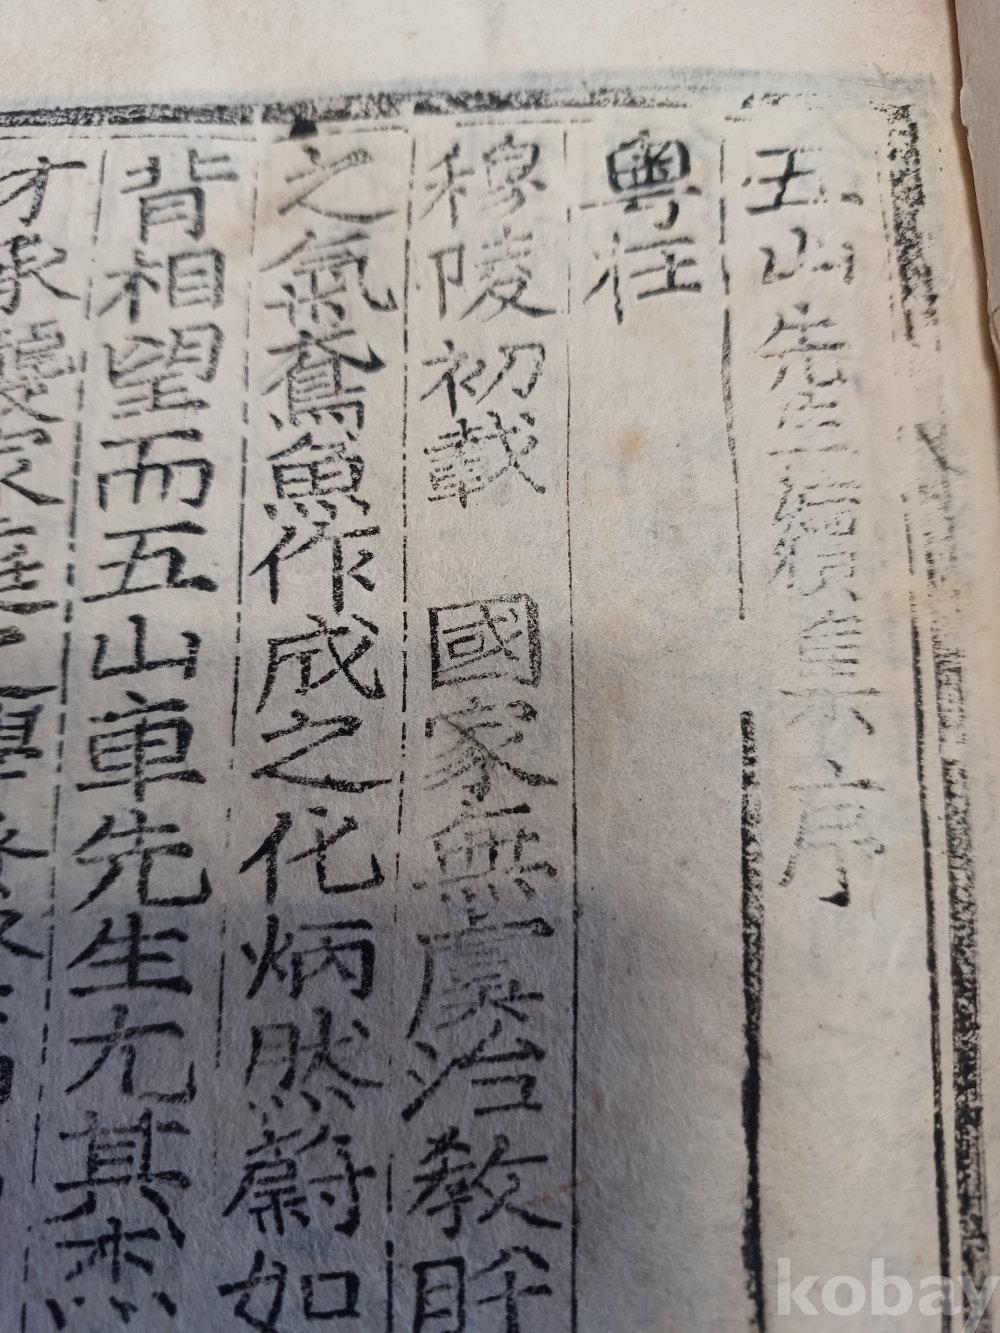 五山先生續集序
粤在
穆陵初載 國家無虞治教
之氣鳶魚作成之化炳然蔚如
背相望而五山車先生尤其杰
才承襲家庭之
kobay